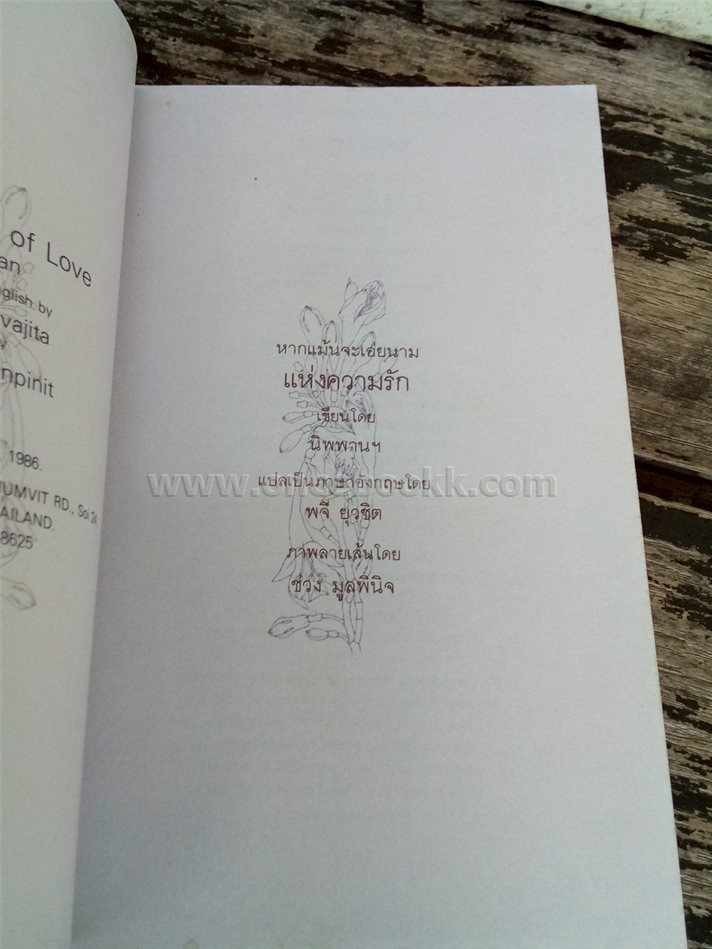 of Love
an
glish by
vajita
y
npinit
1986.
UMVIT RD., Soi 24
AILAND.
8625
หากแม้นจะเอ่ยนาม
แห่งความรัก
เขียนโดย
นิพพานฯ
แปลเป็นภาษาอังกฤษโดย
พจี ยุวชิต
ภาพลายเส้นโดย
ช่วง มูลพินิจ